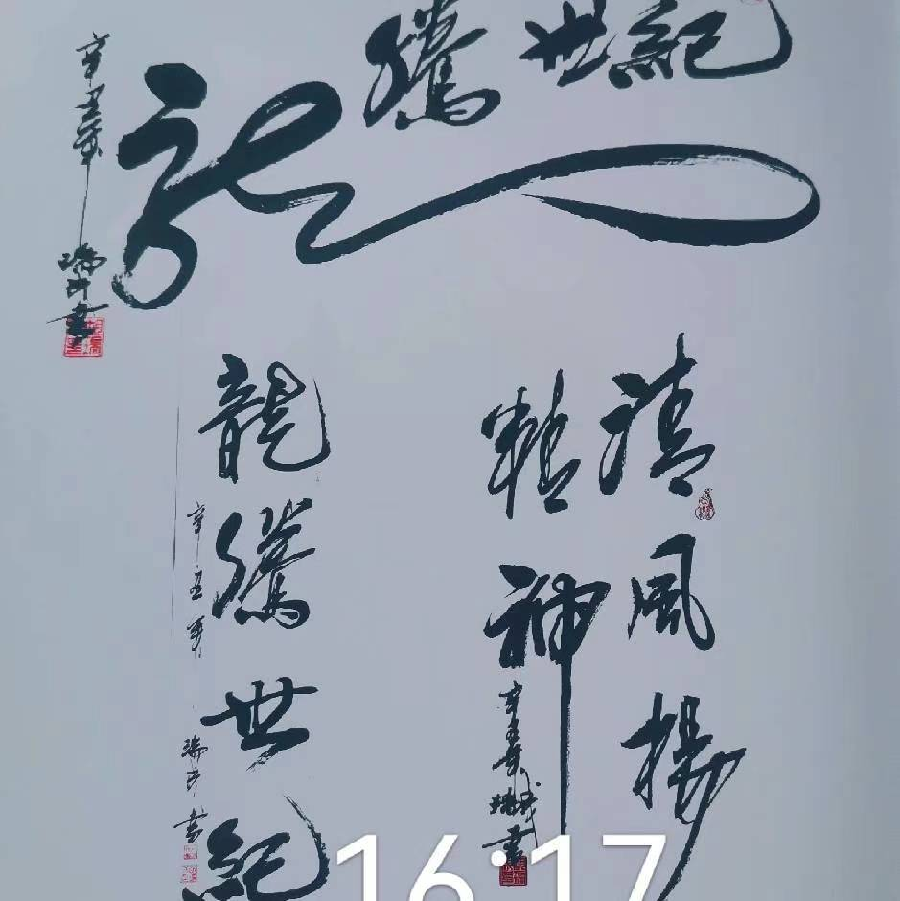 龍騰世紀
辛丑年
瑞民書
清風揚
精神
辛丑年
瑞民書
龍騰世紀
辛丑夏
瑞民書
16:17